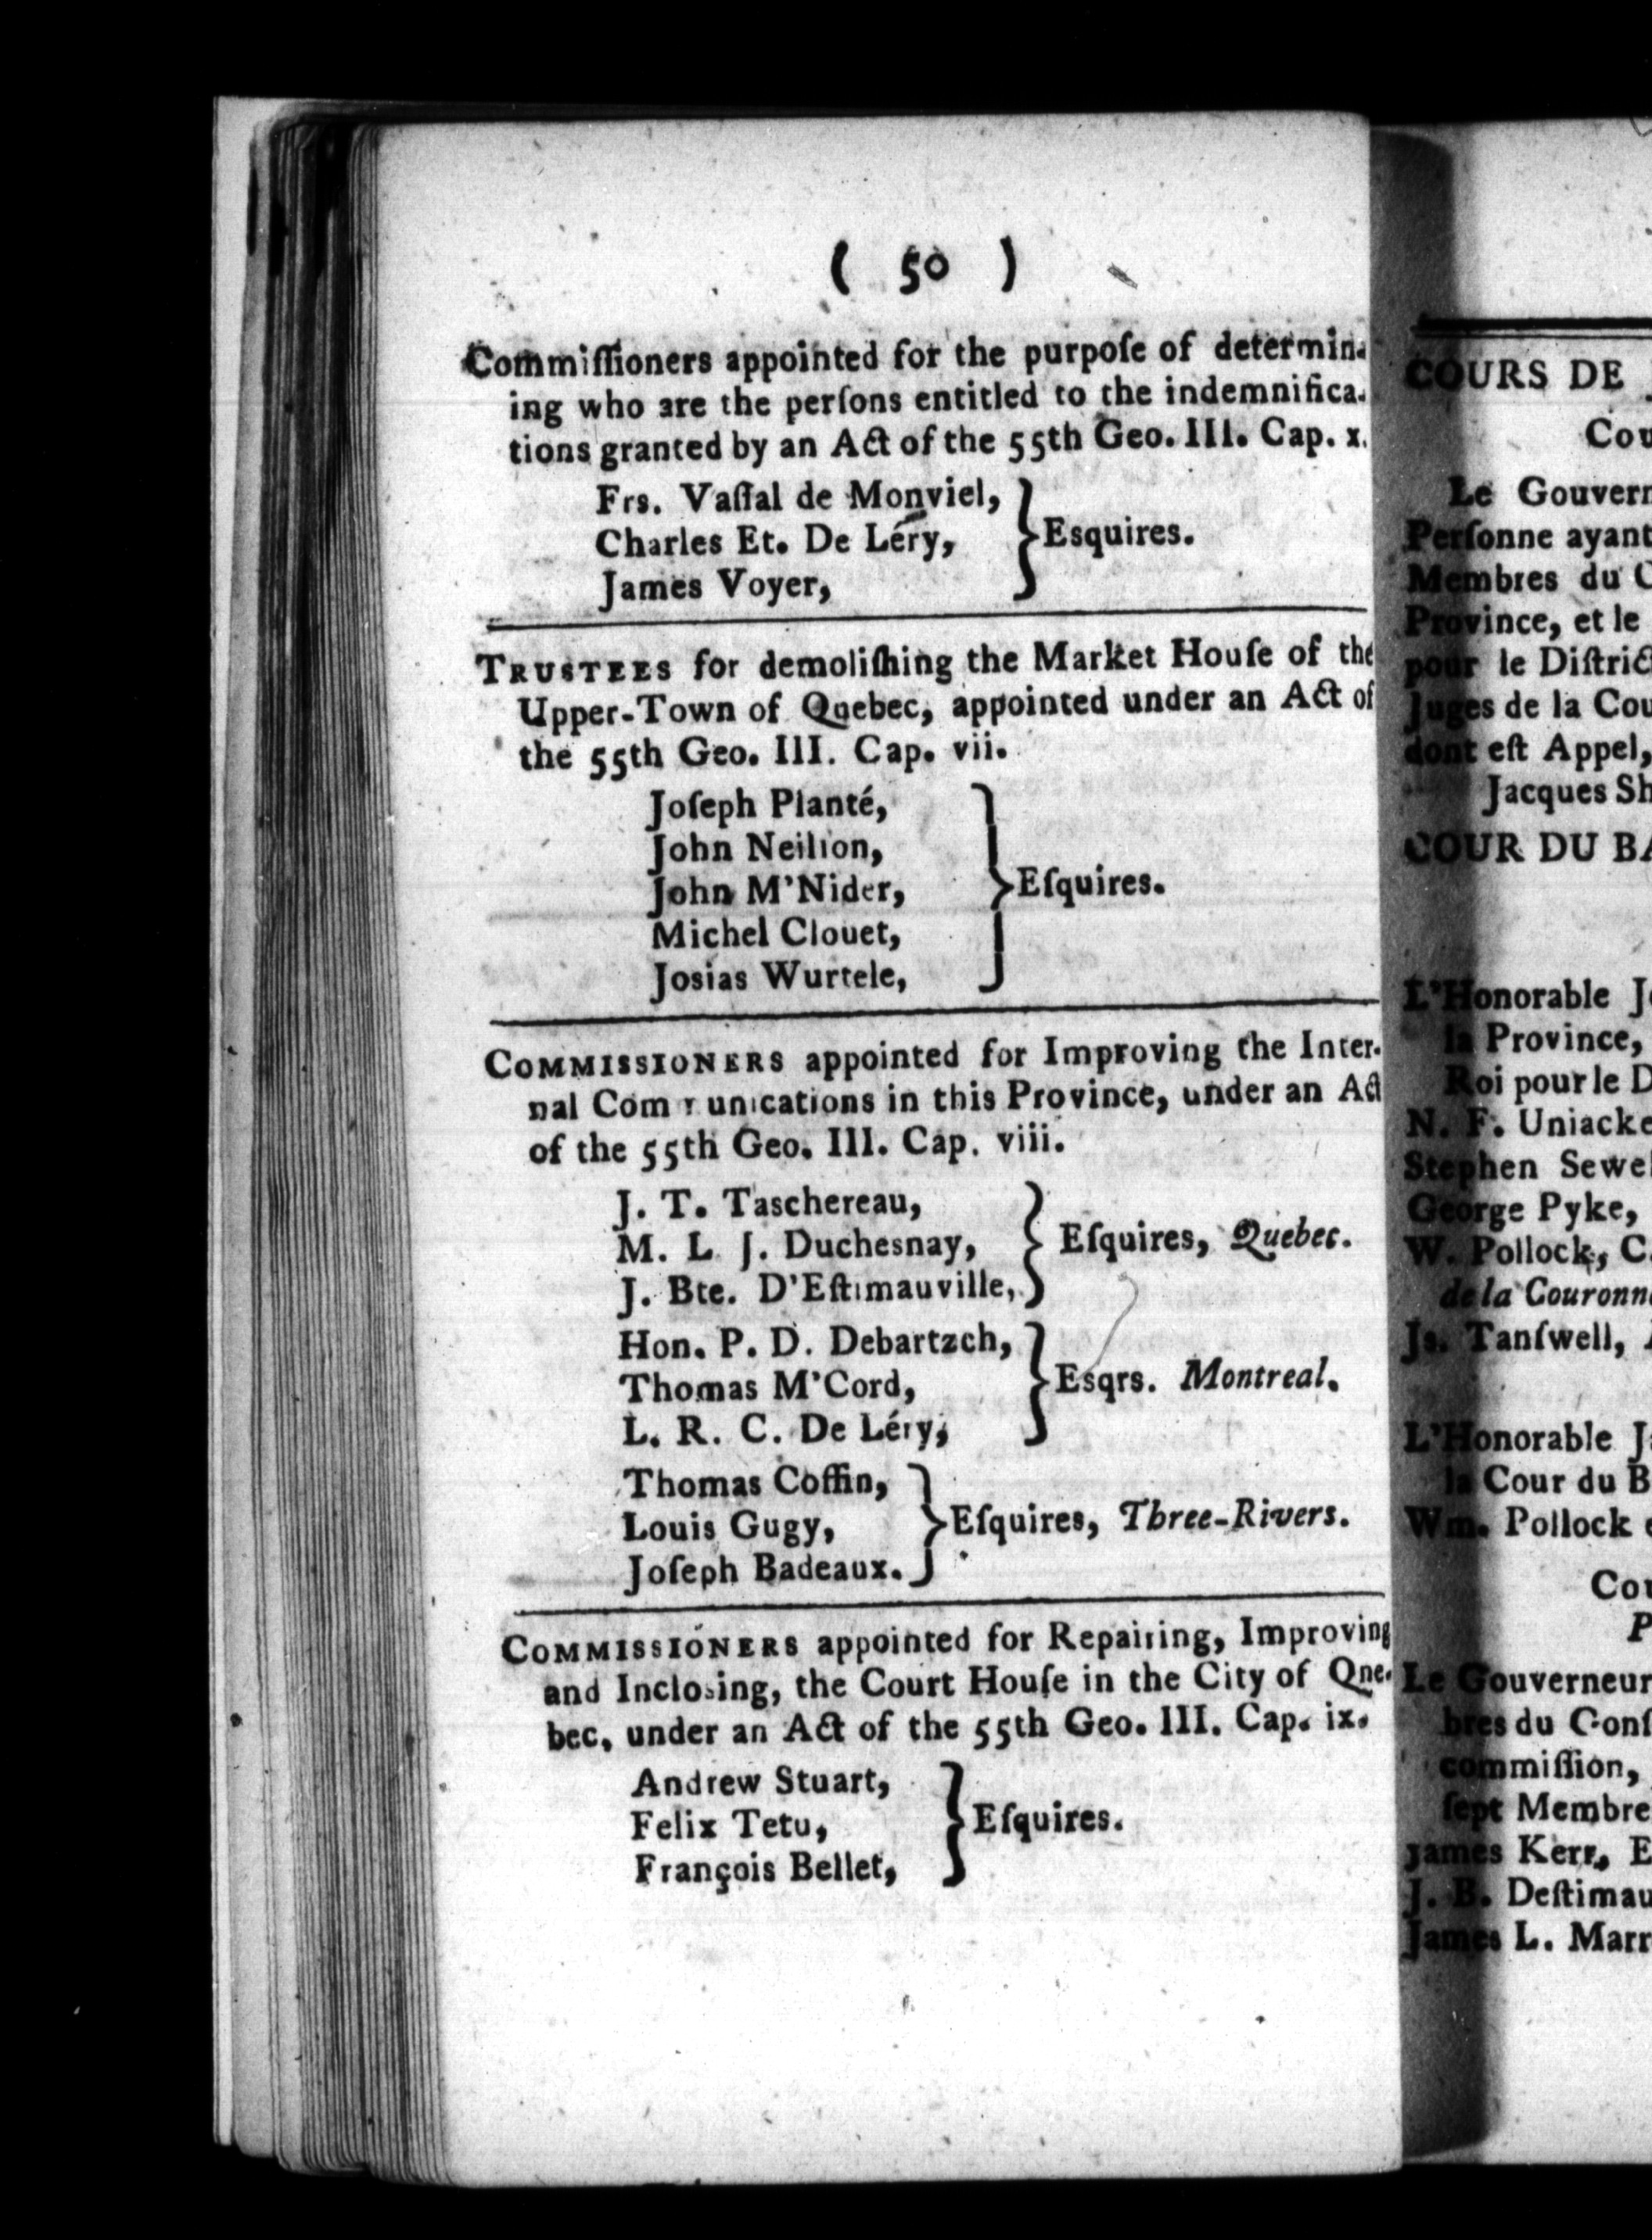 ( 50 )
Commiſſioners appointed for the purpoſe of determin-
ing who are the perſons entitled to the indemnifica-
tions granted by an Act of the 55th Geo. III. Cap. x.
Frs. Vaſſal de Monviel,
Charles Et. De Léry, } Esquires.
James Voyer,
TRUSTEES for demoliſhing the Market Houſe of the
Upper-Town of Quebec, appointed under an Act of
the 55th Geo. III. Cap. vii.
Joſeph Planté,
John Neilſon,
John M'Nider, } Eſquires.
Michel Clouet,
Josias Wurtele,
COMMISSIONERS appointed for Improving the Inter-
nal Communications in this Province, under an Act
of the 55th Geo. III. Cap. viii.
J. T. Taschereau,
M. L J. Duchesnay, } Eſquires, Quebec.
J. Bte. D'Eſtimauville,
Hon. P. D. Debartzch,
Thomas M'Cord, } Esqrs. Montreal.
L. R. C. De Léry,
Thomas Coffin,
Louis Gugy, } Eſquires, Three-Rivers.
Joſeph Badeaux.
COMMISSIONERS appointed for Repairing, Improving
and Inclosing, the Court Houſe in the City of Qne-
bec, under an Act of the 55th Geo. III. Cap. ix.
Andrew Stuart,
Felix Tetu, } Eſquires.
François Bellet,
COURS DE
Le Gouvern
Perſonne ayant
Membres du C
Province, et le
pour le Diſtric
Juges de la Cou
dont eſt Appel,
Jacques Sh
COUR DU BA
L'Honorable J
la Province,
Roi pour le D
N. F. Uniacke
Stephen Sewel
George Pyke,
W. Pollock, C.
de la Couronn
Js. Tanſwell,
L'Honorable J
la Cour du B
Wm. Pollock
Cou
P
Le Gouverneur
bres du Conſ
commiſſion,
ſept Membre
James Kerr, E
J. B. Deſtimau
James L. Marr